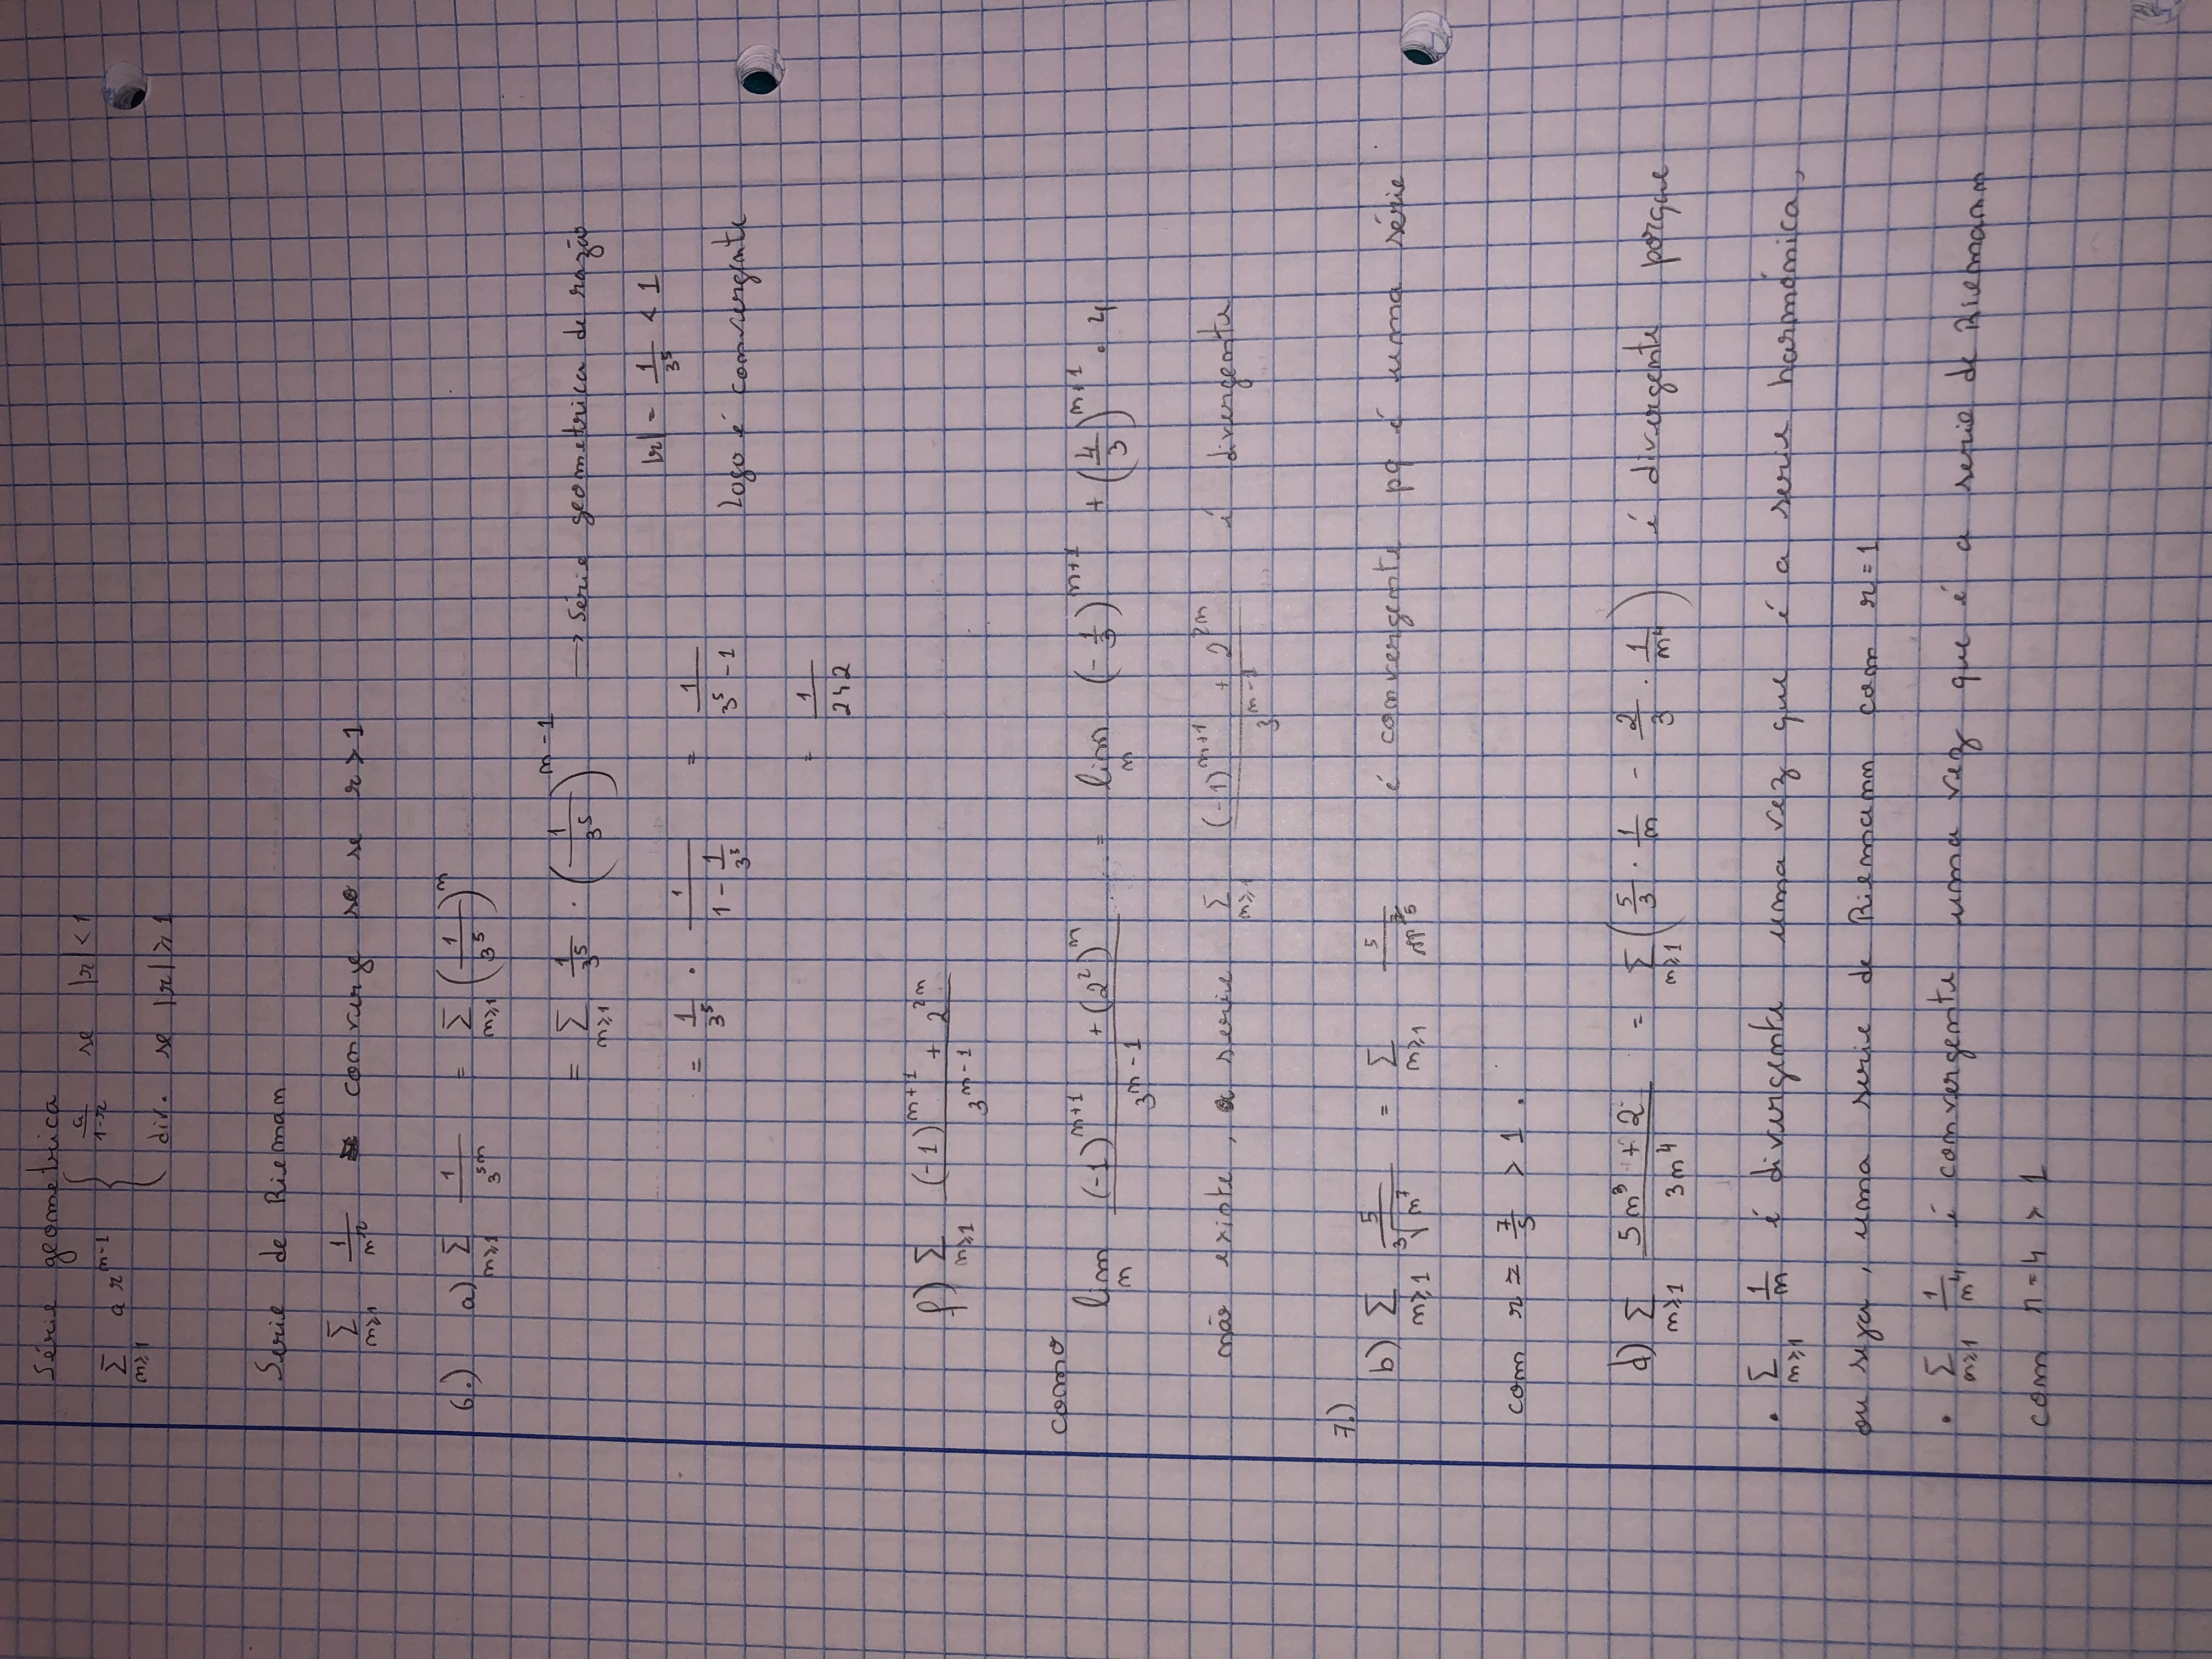 Série geometrica
∑_{n≥1} a r^{n-1} { a/(1-r) se |r| < 1
div. se |r| ≥ 1
Serie de Rieman
∑_{n≥1} 1/n^r converge so se r > 1
6.) a) ∑_{n≥1} 1/3^{5n} = ∑_{n≥1} (1/3^5)^n
= ∑_{n≥1} 1/3^5 · (1/3^5)^{n-1} → Série geometrica de razão
|r| = 1/3^5 < 1
= 1/3^5 · 1/(1 - 1/3^5) = 1/(3^5 - 1) Logo é convergente
= 1/242
f) ∑_{n≥1} ((-1)^{n+1} + 2^{2n})/3^{n-1}
como
lim_n ((-1)^{n+1} + (2^2)^n)/3^{n-1} = lim_n (-1/3)^{n+1} + (4/3)^{n+1} · 4
não existe, a serie ∑_{n≥1} ((-1)^{n+1} + 2^{2n})/3^{n-1} é divergente
7.)
b) ∑_{n≥1} 5/∛(n^7) = ∑_{n≥1} 5/n^{7/5} é convergente pq é uma série
com r = 7/5 > 1.
d) ∑_{n≥1} (5n^3 + 2)/3n^4 = ∑_{n≥1} (5/3 · 1/n - 2/3 · 1/n^4) é divergente porque
• ∑_{n≥1} 1/n é divergente uma vez que é a serie harmónica,
ou seja, uma serie de Riemann com r = 1
• ∑_{n≥1} 1/n^4 é convergente uma vez que é a serie de Riemann
com r = 4 > 1